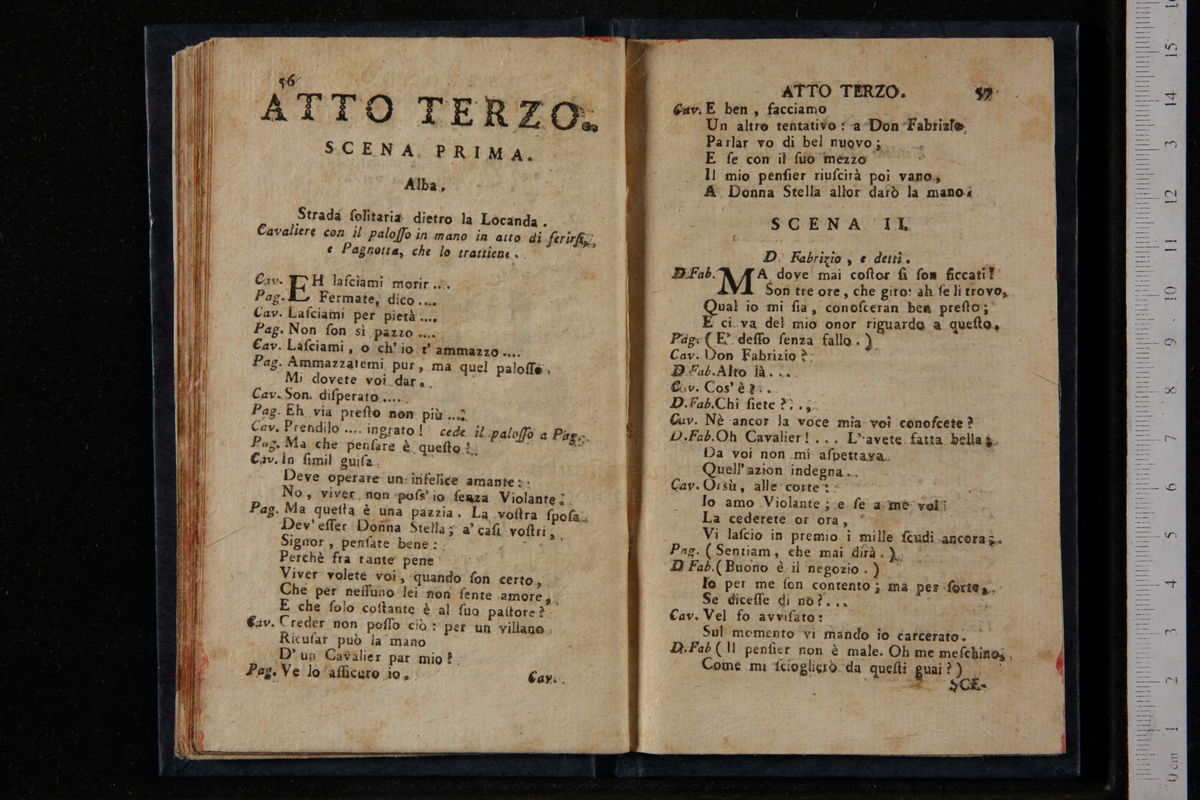 56
ATTO TERZO.
SCENA PRIMA.
Alba.
Strada ſolitaria dietro la Locanda.
Cavaliere con il paloſſo in mano in atto di ferirſi,
e Pagnotta, che lo trattiene.
Cav. EH laſciami morir ...
Pag. Fermate, dico ....
Cav. Laſciami per pietà ....
Pag. Non ſon sì pazzo ....
Cav. Laſciami, o ch' io t' ammazzo ....
Pag. Ammazzatemi pur, ma quel paloſſo
Mi dovete voi dar.
Cav. Son diſperato ....
Pag. Eh via preſto non più ....
Cav. Prendilo .... ingrato! cede il paloſſo a Pag.
Pag. Ma che penſare è queſto!
Cav. In ſimil guiſa
Deve operare un infelice amante:
No, viver non poſs' io ſenza Violante.
Pag. Ma queſta è una pazzia. La voſtra ſpoſa
Dev' eſſer Donna Stella; a' caſi voſtri,
Signor, penſate bene:
Perchè fra tante pene
Viver volete voi, quando ſon certo,
Che per neſſuno lei non ſente amore,
E che ſolo coſtante è al ſuo paſtore?
Cav. Creder non poſſo ciò: per un villano
Ricuſar può la mano
D' un Cavalier par mio?
Pag. Ve lo aſſicuro io.
Cav.
ATTO TERZO. 57
Cav. E ben, facciamo
Un altro tentativo: a Don Fabrizio
Parlar vo di bel nuovo;
E ſe con il ſuo mezzo
Il mio penſier riuſcirà poi vano,
A Donna Stella allor darò la mano.
SCENA II.
D. Fabrizio, e detti.
D.Fab. MA dove mai coſtor ſi ſon ficcati!
Son tre ore, che giro: ah ſe li trovo,
Qual io mi ſia, conoſceran ben preſto;
E ci va del mio onor riguardo a queſto.
Pag. (E' deſſo ſenza fallo.)
Cav. Don Fabrizio?
D.Fab. Alto là....
Cav. Cos' è?..
D.Fab. Chi ſiete?...
Cav. Nè ancor la voce mia voi conoſcete?
D.Fab. Oh Cavalier!... L' avete fatta bella;
Da voi non mi aſpettava
Quell' azion indegna.
Cav. Orsù, alle corte:
Io amo Violante; e ſe a me voi
La cederete or ora,
Vi laſcio in premio i mille ſcudi ancora.
Pag. (Sentiam, che mai dirà.)
D Fab. (Buono è il negozio.)
Io per me ſon contento; ma per ſorte,
Se diceſſe di no?...
Cav. Vel fo avviſato:
Sul momento vi mando io carcerato.
D.Fab (Il penſier non è male. Oh me meſchino,
Come mi ſcioglierò da queſti guai?)
SCE-